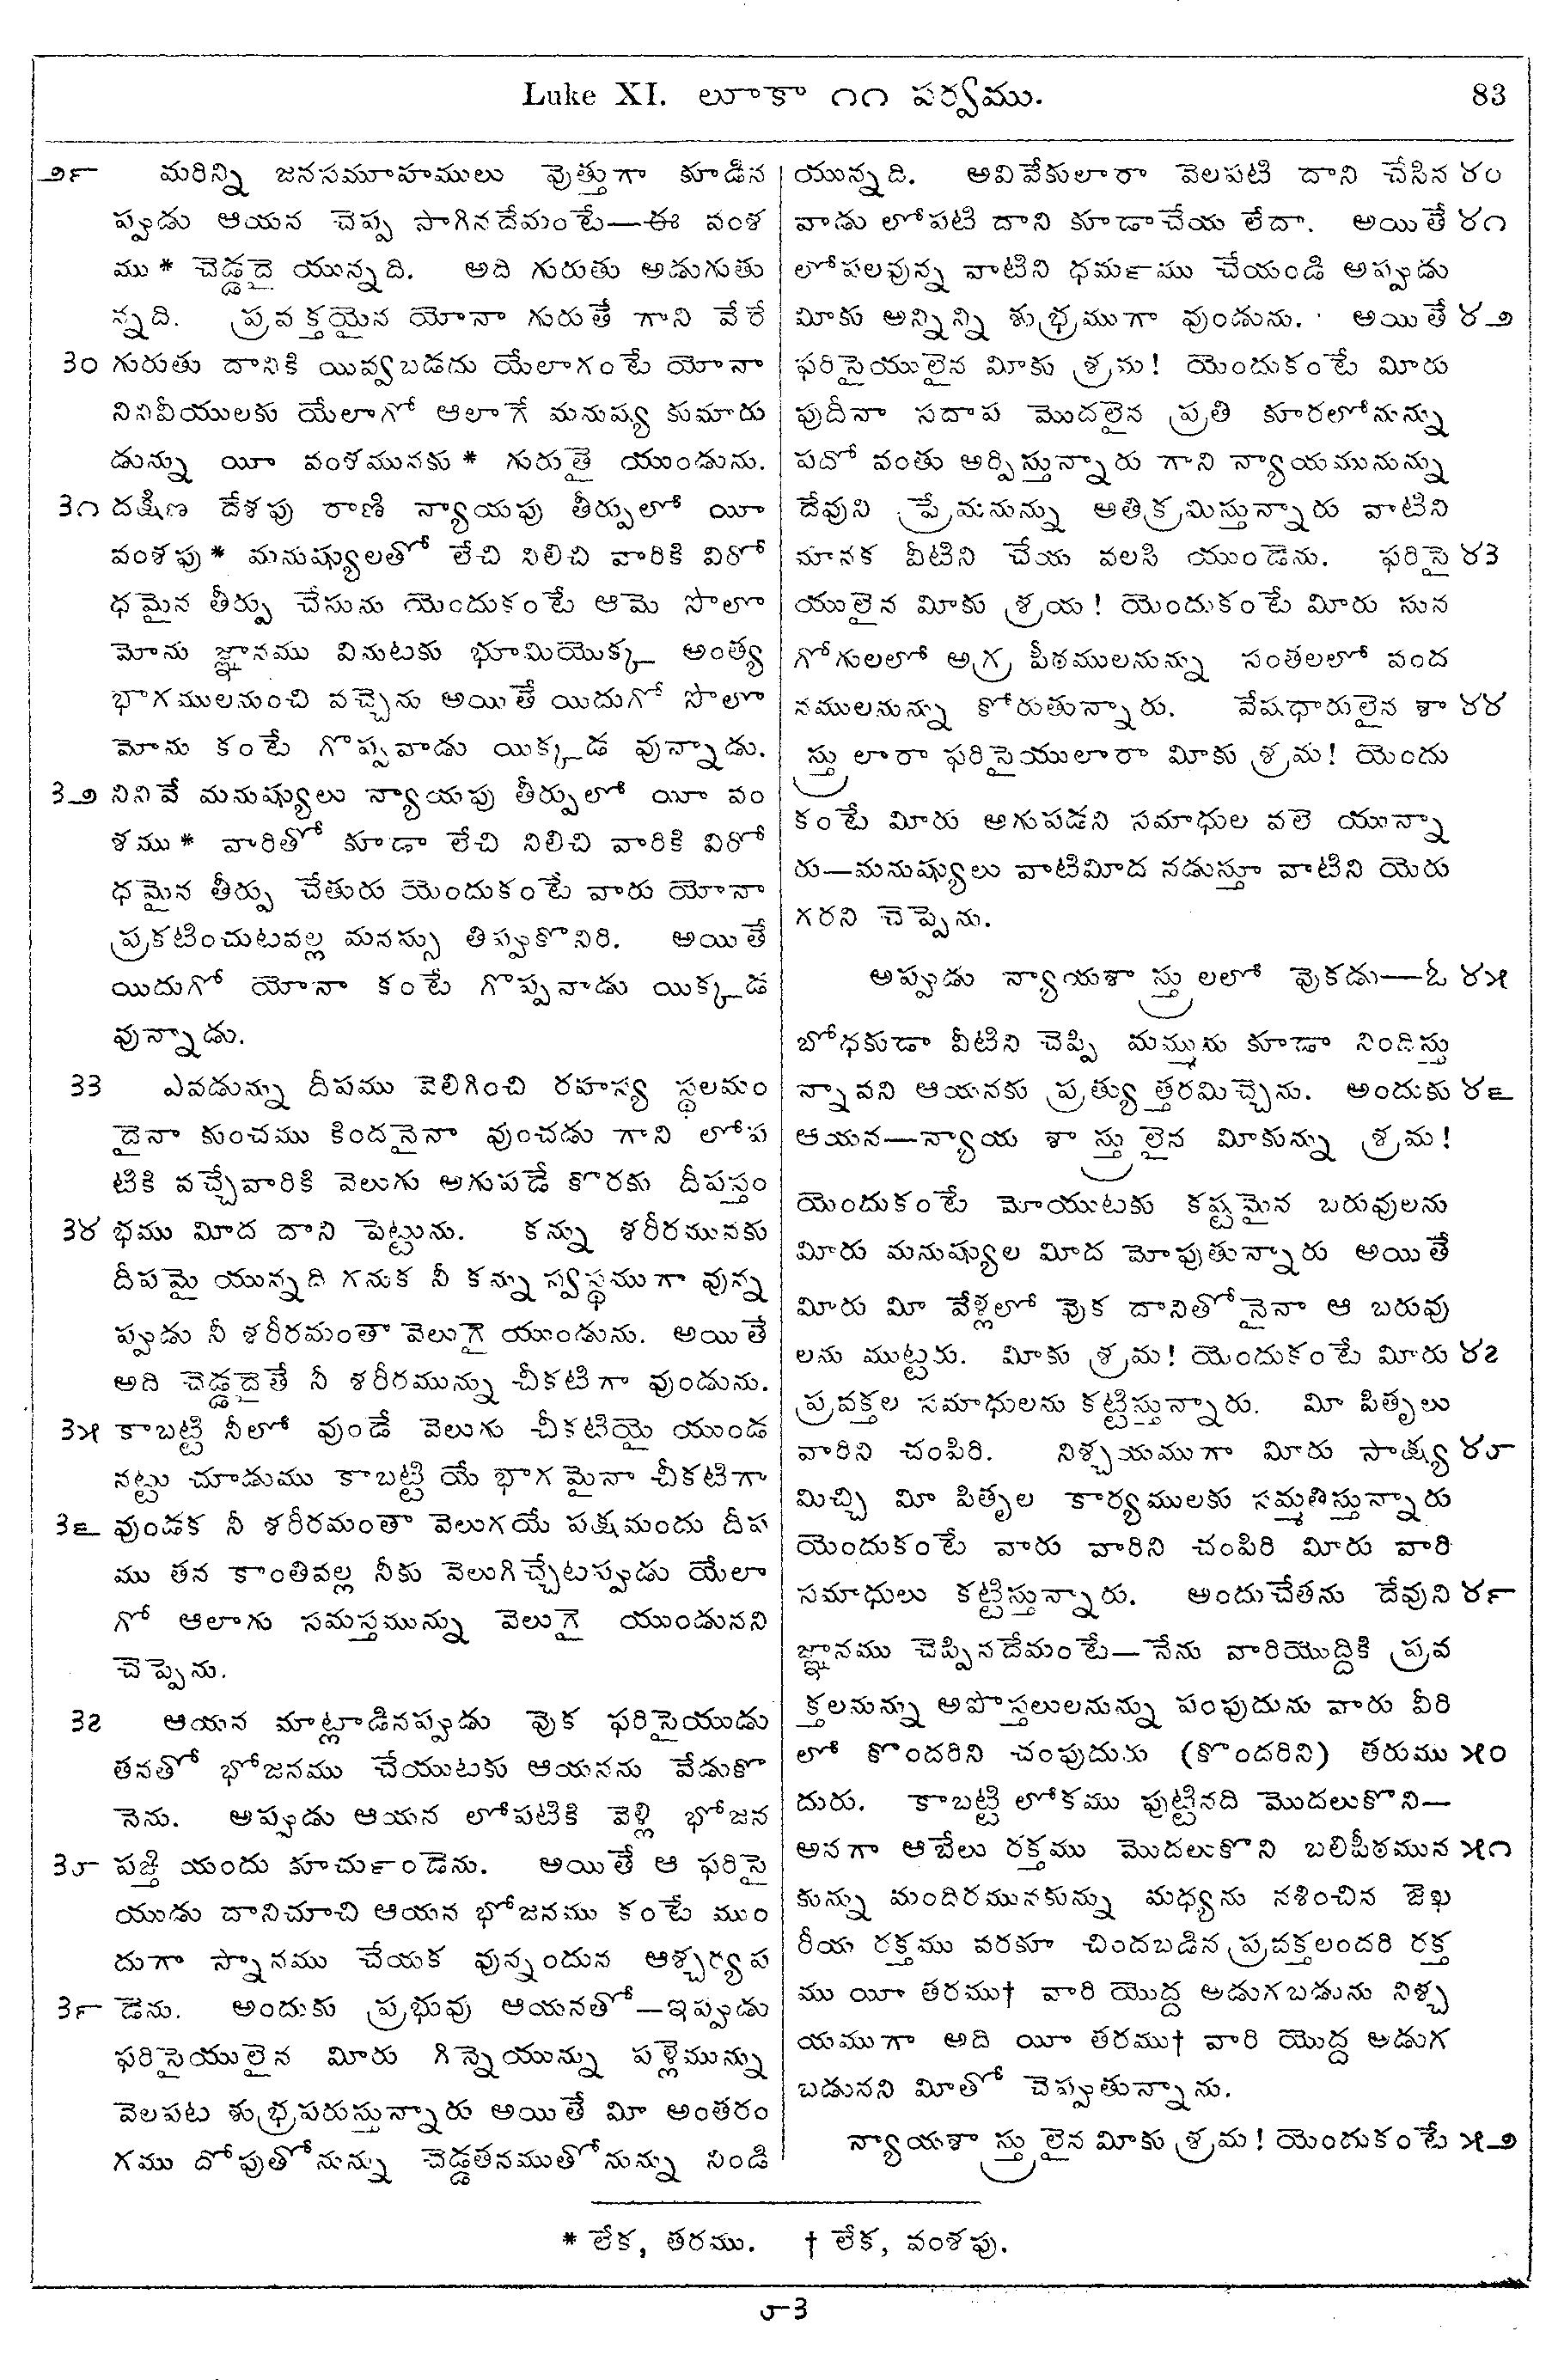 Luke XI. లూకా ౧౧ పర్వము. 83
౨౯ మరిన్ని జనసమూహములు వొత్తుగా కూడిన
ప్పుడు ఆయన చెప్ప సాగినదేమంటే—ఈ వంశ
ము* చెడ్డదై యున్నది. అది గురుతు అడుగుతు
న్నది. ప్రవక్తయైన యోనా గురుతే గాని వేరే
౩౦ గురుతు దానికి యివ్వబడదు యేలాగంటే యోనా
నినివీయులకు యేలాగో ఆలాగే మనుష్య కుమారు
డున్ను యీ వంశమునకు* గురుతై యుండును.
౩౧ దక్షిణ దేశపు రాణి న్యాయపు తీర్పులో యీ
వంశపు* మనుష్యులతో లేచి నిలిచి వారికి విరో
ధమైన తీర్పు చేసును యెందుకంటే ఆమె సొలొ
మోను జ్ఞానము వినుటకు భూమియొక్క అంత్య
భాగములనుంచి వచ్చెను అయితే యిదుగో సొలొ
మోను కంటే గొప్పవాడు యిక్కడ వున్నాడు.
౩౨ నినివే మనుష్యులు న్యాయపు తీర్పులో యీ వం
శము* వారితో కూడా లేచి నిలిచి వారికి విరో
ధమైన తీర్పు చేతురు యెందుకంటే వారు యోనా
ప్రకటించుటవల్ల మనస్సు తిప్పుకొనిరి. అయితే
యిదుగో యోనా కంటే గొప్పవాడు యిక్కడ
వున్నాడు.
౩౩ ఎవడున్ను దీపము వెలిగించి రహస్య స్థలమం
దైనా కుంచము కిందనైనా వుంచడు గాని లోప
టికి వచ్చేవారికి వెలుగు అగుపడే కొరకు దీపస్తం
౩౪ భము మీద దాని పెట్టును. కన్ను శరీరమునకు
దీపమై యున్నది గనుక నీ కన్ను స్వస్థముగా వున్న
ప్పుడు నీ శరీరమంతా వెలుగై యుండును. అయితే
అది చెడ్డదైతే నీ శరీరమున్ను చీకటిగా వుండును.
౩౫ కాబట్టి నీలో వుండే వెలుగు చీకటియై యుండ
నట్టు చూడుము కాబట్టి యే భాగమైనా చీకటిగా
౩౬ వుండక నీ శరీరమంతా వెలుగయే పక్షమందు దీప
ము తన కాంతివల్ల నీకు వెలుగిచ్చేటప్పుడు యేలా
గో ఆలాగు సమస్తమున్ను వెలుగై యుండునని
చెప్పెను.
౩౭ ఆయన మాట్లాడినప్పుడు వొక ఫరిసైయుడు
తనతో భోజనము చేయుటకు ఆయనను వేడుకొ
నెను. అప్పుడు ఆయన లోపటికి వెళ్లి భోజన
౩౮ పఙ్తి యందు కూచుర్౦డెను. అయితే ఆ ఫరిసై
యుడు దానిచూచి ఆయన భోజనము కంటే ముం
దుగా స్నానము చేయక వున్నందున ఆశ్చర్యప
౩౯ డెను. అందుకు ప్రభువు ఆయనతో—ఇప్పుడు
ఫరిసైయులైన మీరు గిన్నెయున్ను పళ్లెమున్ను
వెలపట శుభ్రపరుస్తున్నారు అయితే మీ అంతరం
గము దోపుతోనున్ను చెడ్డతనముతోనున్ను నిండి
యున్నది. అవివేకులారా వెలపటి దాని చేసిన ౪౦
వాడు లోపటి దాని కూడాచేయ లేదా. అయితే ౪౧
లోపలవున్న వాటిని ధర్మము చేయండి అప్పుడు
మీకు అన్నిన్ని శుభ్రముగా వుండును. అయితే ౪౨
ఫరిసైయులైన మీకు శ్రమ! యెందుకంటే మీరు
పుదీనా సదాప మొదలైన ప్రతి కూరలోనున్ను
పదో వంతు అర్పిస్తున్నారు గాని న్యాయమునున్ను
దేవుని ప్రేమనున్ను అతిక్రమిస్తున్నారు వాటిని
మానక వీటిని చేయ వలసి యుండెను. ఫరిసై ౪౩
యులైన మీకు శ్రయ! యెందుకంటే మీరు సున
గోగులలో అగ్ర పీఠములనున్ను సంతలలో వంద
నములనున్ను కోరుతున్నారు. వేషధారులైన శా ౪౪
స్త్రులారా ఫరిసైయులారా మీకు శ్రమ! యెందు
కంటే మీరు అగుపడని సమాధుల వలె యున్నా
రు—మనుష్యులు వాటిమీద నడుస్తూ వాటిని యెరు
గరని చెప్పెను.
అప్పుడు న్యాయశాస్త్రులలో వొకడు—ఓ ౪౫
బోధకుడా వీటిని చెప్పి మమ్మును కూడా నిందిస్తు
న్నావని ఆయనకు ప్రత్యుత్తరమిచ్చెను. అందుకు ౪౬
ఆయన—న్యాయ శాస్త్రులైన మీకున్ను శ్రమ!
యెందుకంటే మోయుటకు కష్టమైన బరువులను
మీరు మనుష్యుల మీద మోపుతున్నారు అయితే
మీరు మీ వేళ్లలో వొక దానితోనైనా ఆ బరువు
లను ముట్టరు. మీకు శ్రమ! యెందుకంటే మీరు ౪౭
ప్రవక్తల సమాధులను కట్టిస్తున్నారు. మీ పితృలు
వారిని చంపిరి. నిశ్చయముగా మీరు సాక్ష్య ౪౮
మిచ్చి మీ పితృల కార్యములకు సమ్మతిస్తున్నారు
యెందుకంటే వారు వారిని చంపిరి మీరు వారి
సమాధులు కట్టిస్తున్నారు. అందుచేతను దేవుని ౪౯
జ్ఞానము చెప్పినదేమంటే—నేను వారియొద్దికి ప్రవ
క్తలనున్ను అపొస్తలులనున్ను పంపుదును వారు వీరి
లో కొందరిని చంపుదురు (కొందరిని) తరుము ౫౦
దురు. కాబట్టి లోకము పుట్టినది మొదలుకొని—
అనగా ఆబేలు రక్తము మొదలుకొని బలిపీఠమున ౫౧
కున్ను మందిరమునకున్ను మధ్యను నశించిన జెఖ
రీయ రక్తము వరకూ చిందబడిన ప్రవక్తలందరి రక్త
ము యీ తరము† వారి యొద్ద అడుగబడును నిశ్చ
యముగా అది యీ తరము† వారి యొద్ద అడుగ
బడునని మీతో చెప్పుతున్నాను.
న్యాయశాస్త్రులైన మీకు శ్రమ! యెందుకంటే ౫౨
* లేక, తరము. † లేక, వంశపు.
౮౩